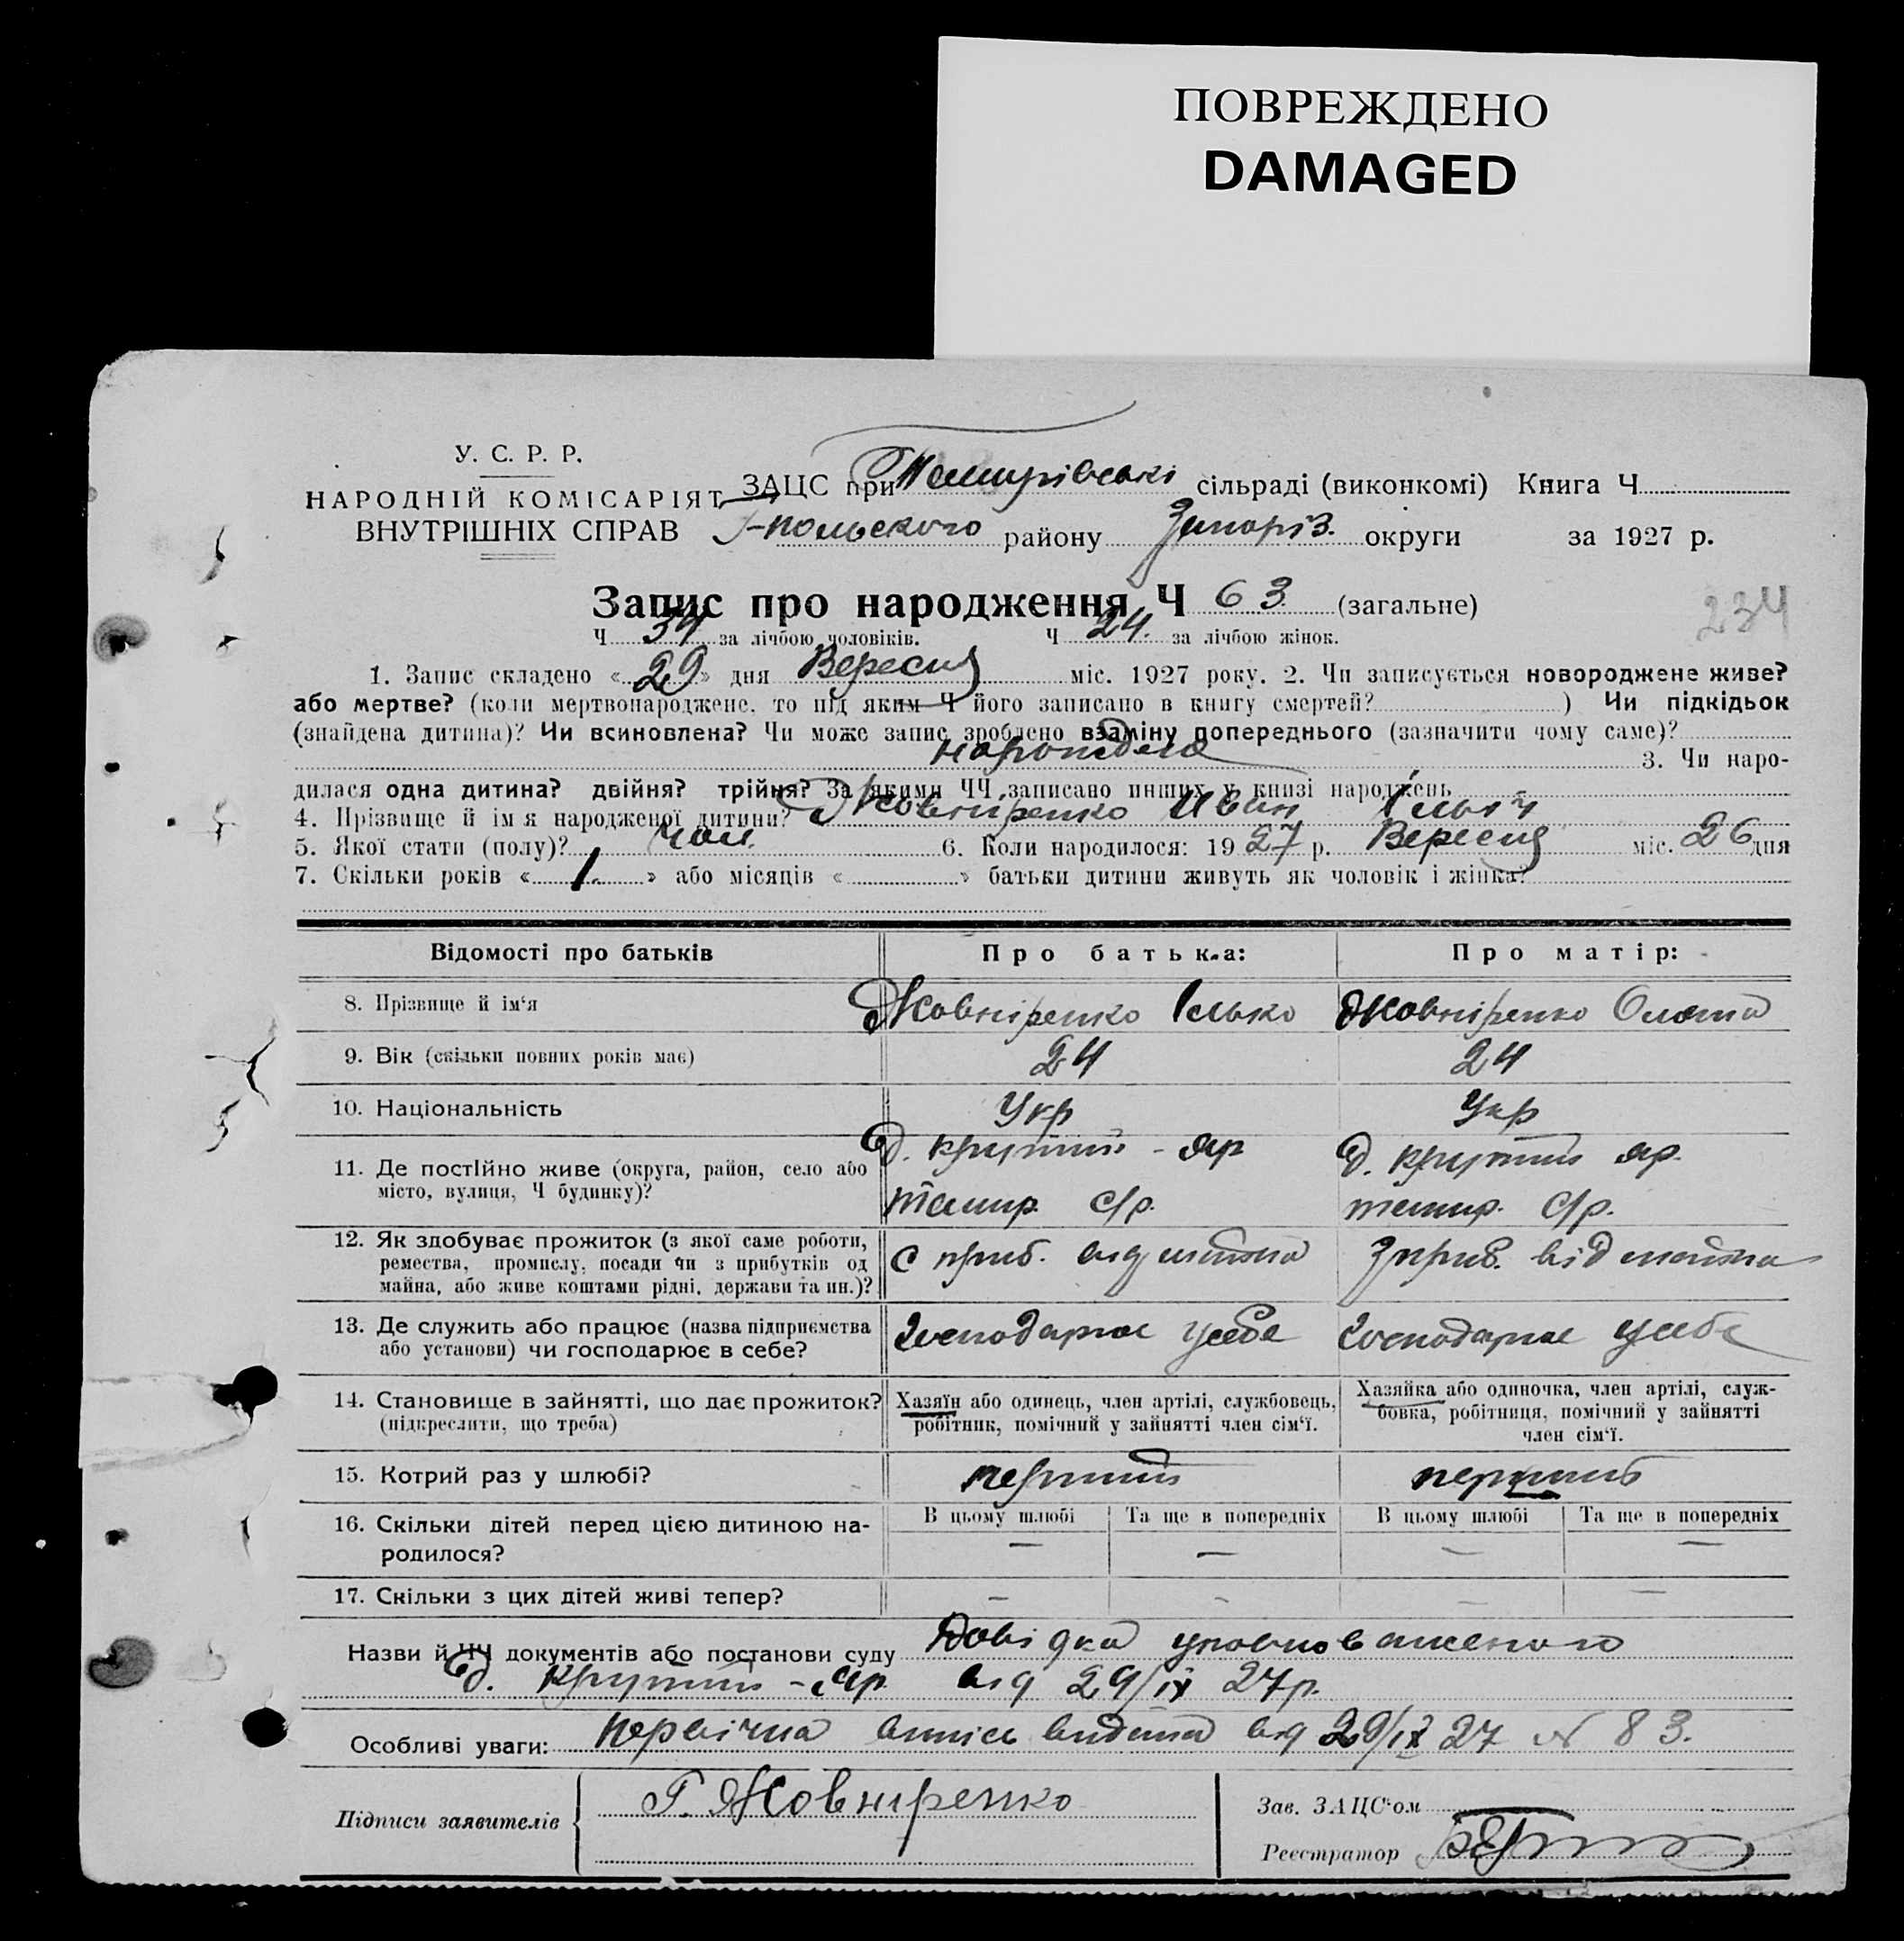 ПОВРЕЖДЕНО
DAMAGED
У. С. Р. Р.
НАРОДНІЙ КОМІСАРІЯТ
ВНУТРІШНІХ СПРАВ
ЗАЦС при Темирівські сільраді (виконкомі) Книга Ч
Г-польского району Запоріз. округи за 1927 р.
Запис про народження Ч 63 (загальне)
234
Ч 39 за лічбою чоловіків. Ч 24. за лічбою жінок.
1. Запис складено « 29 » дня Вересня міс. 1927 року. 2. Чи записується новороджене живе?
або мертве? (коли мертвонароджене, то під яким Ч його записано в книгу смертей? ) Чи підкідьок
(знайдена дитина)? Чи всиновлена? Чи може запис зроблено взаміну попереднього (зазначити чому саме)?
3. Чи наро-
дилася одна дитина? двійня? трійня? За якими ЧЧ записано инших у книзі народжень
4. Прізвище й ім я народженої дитини? Жовніренко Иван Ільїч
5. Якої стати (полу)? чол. 6. Коли народилося: 19 27 р. Вересня міс. 26 дня
7. Скільки років « 1. » або місяців « » батьки дитини живуть як чоловік і жінка?
Відомості про батьків Про батька: Про матір:
8. Прізвище й ім'я Жовніренко Ілько Жовніренко
9. Вік (скільки повних років має) 24 24
10. Національність Укр Укр
11. Де постійно живе (округа, район, село або Д. крутий - яр Д. крутий яр.
місто, вулиця, Ч будинку)? темир. с/р. темир. с/р.
12. Як здобуває прожиток (з якої саме роботи,
ремества, промислу, посади чи з прибутків од с приб. від майна з приб. від майна
майна, або живе коштами рідні, держави та ин.)?
13. Де служить або працює (назва підприємства господарює у себе господарює у себе
або установи) чи господарює в себе?
14. Становище в зайнятті, що дає прожиток? Хазяїн або одинець, член артілі, службовець, Хазяйка або одиночка, член артілі, служ-
(підкреслити, що треба) робітник, помічний у зайнятті член сім'ї. бовка, робітниця, помічний у зайнятті
член сім'ї.
15. Котрий раз у шлюбі? перший перший
16. Скільки дітей перед цією дитиною на- В цьому шлюбі Та ще в попередніх В цьому шлюбі Та ще в попередніх
родилося? — — — —
17. Скільки з цих дітей живі тепер? — — — —
Назви й ЧЧ документів або постанови суду Довідка уповноваженого
Д. крутий - яр від 29/ІХ 27р.
Особливі уваги: первічна випісь видана від 29/ІХ 27 № 83.
Підписи заявителів Г. Жовниренко Зав. ЗАЦС'ом
Реєстратор